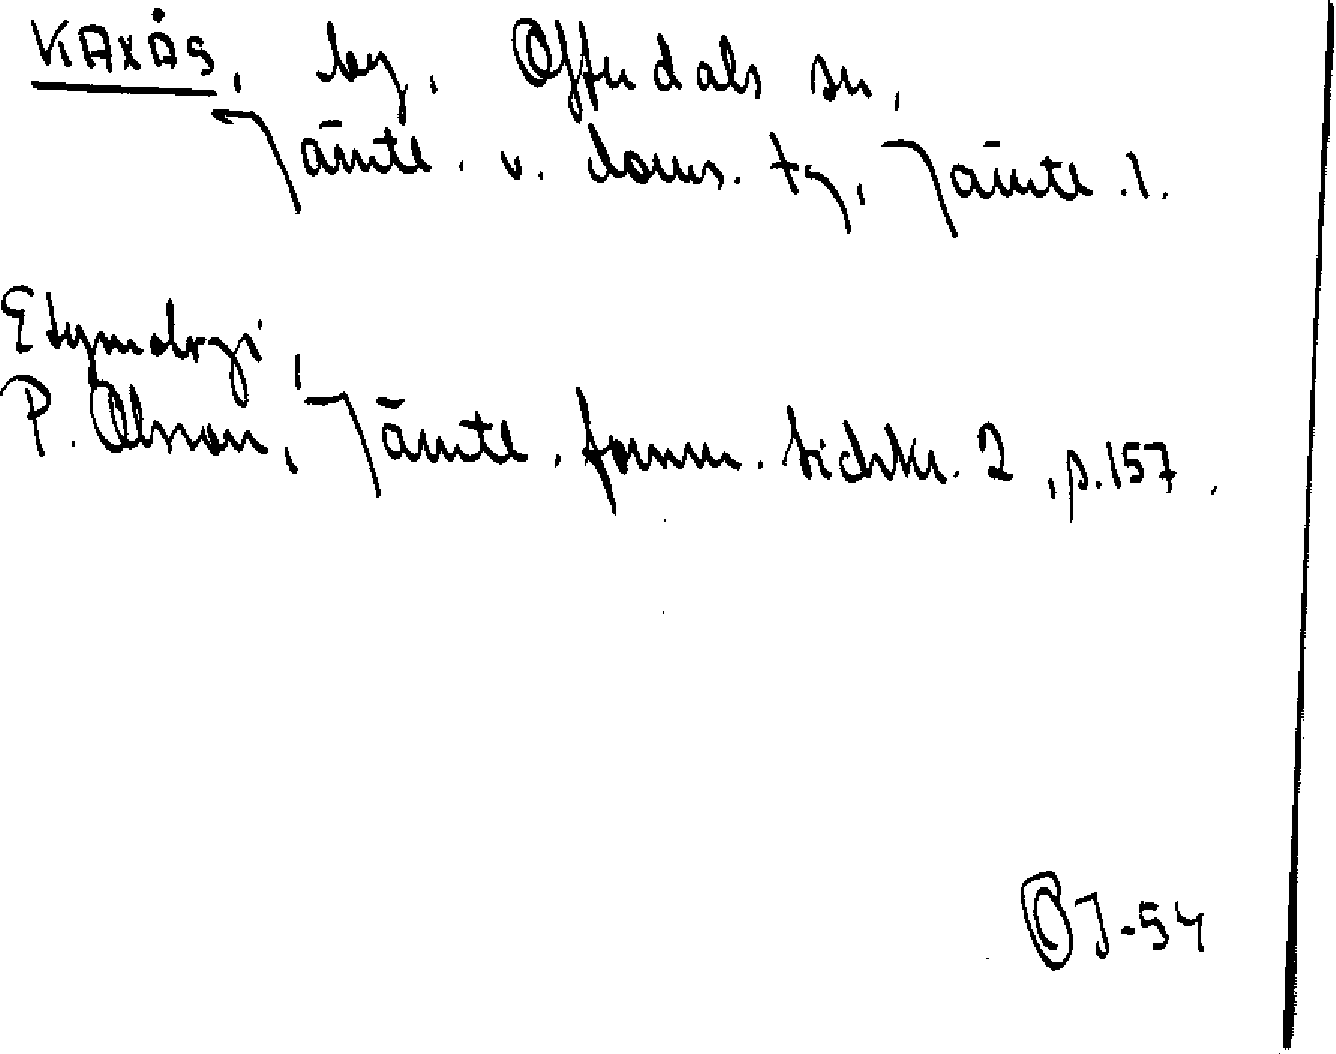 KAXÅS, by, Offerdals sn,
Jämtl. v. doms. tg, Jämtl. l.
Etymologi,
P. Olsson, Jämtl. fornm. tidskr. 2, p. 157.
OJ-54